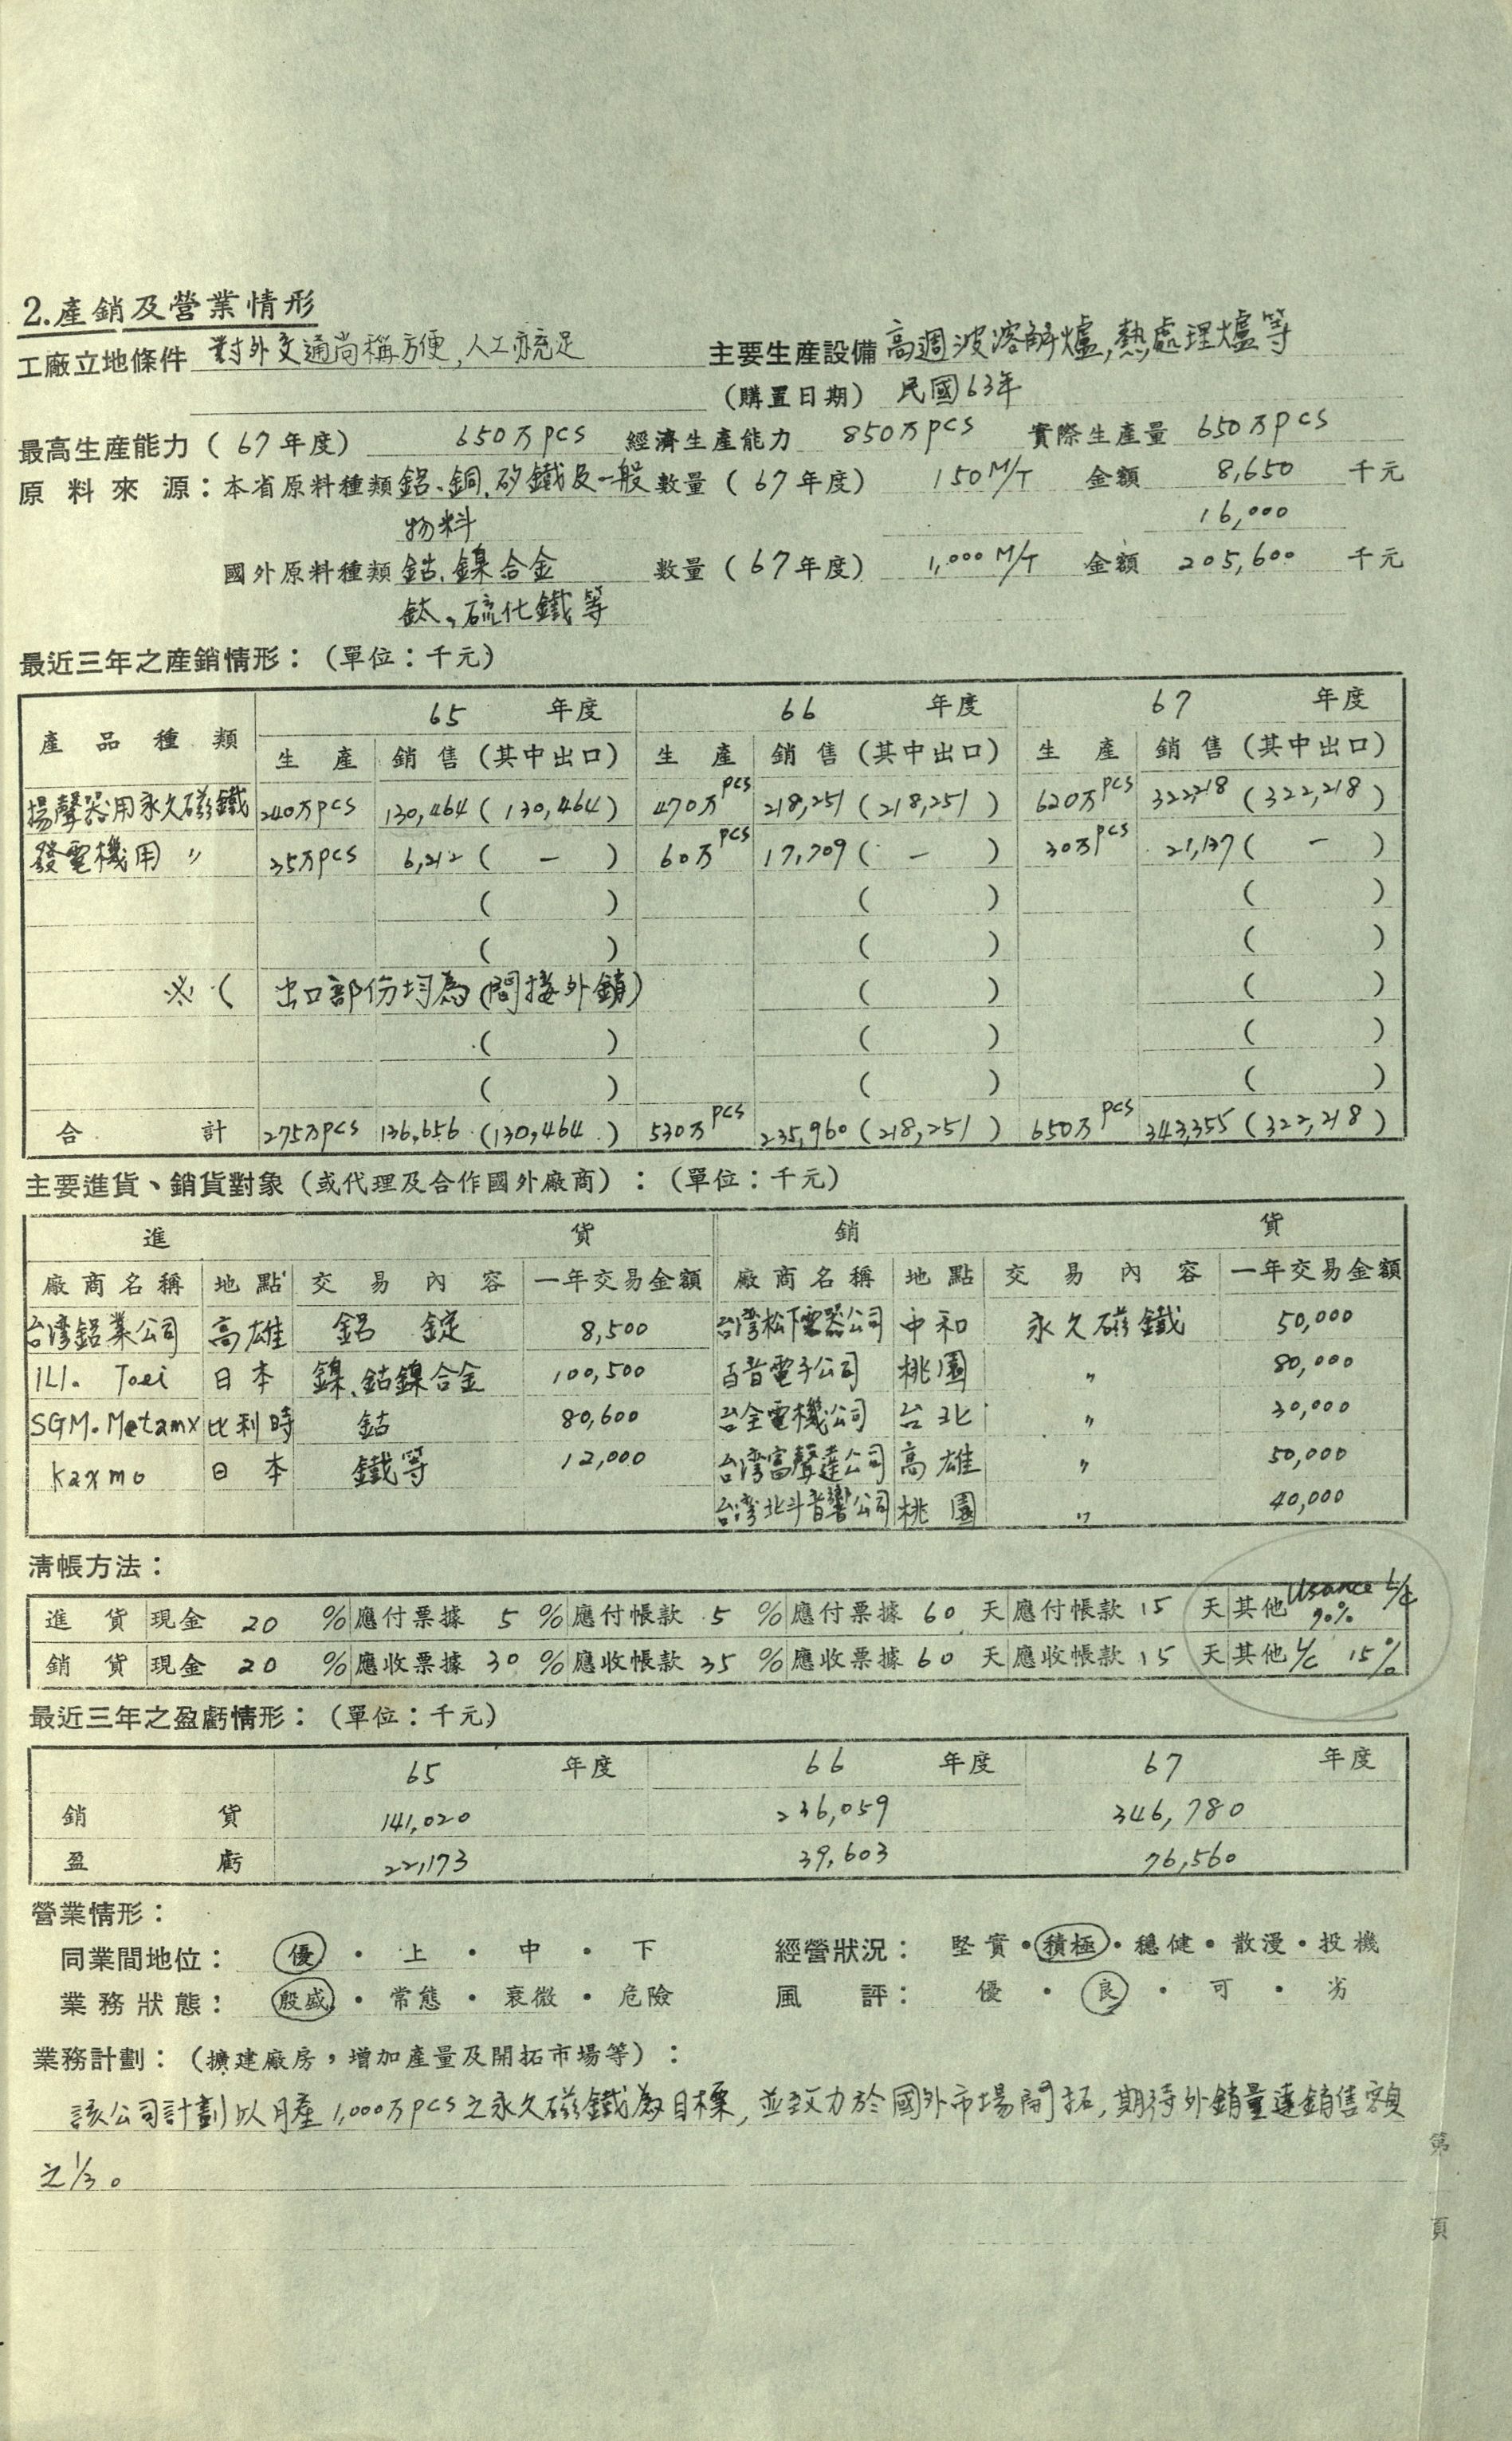 2.產銷及營業情形
工廠立地條件 對外交通尚稱方便,人工亦充足 主要生產設備 高週波溶解爐,熱處理爐等
(購置日期) 民國63年
最高生產能力(67年度) 650万PCS 經濟生產能力 850万PCS 實際生產量 650万PCS
原料來源:本省原料種類 鋁、銅、矽鐵及一般 數量(67年度) 150M/T 金額 8,650 千元
物料 16,000
國外原料種類 鈷、鎳合金 數量(67年度) 1,000M/T 金額 205,600 千元
鈦、硫化鐵等
最近三年之產銷情形:(單位:千元)
65 年度 66 年度 67 年度
產品種類
生產 銷售(其中出口) 生產 銷售(其中出口) 生產 銷售(其中出口)
揚聲器用永久磁鐵 240万PCS 130,464(130,464) 470万PCS 218,251(218,251) 620万PCS 322,218(322,218)
發電機用 〃 35万PCS 6,212( - ) 60万PCS 17,709( - ) 30万PCS 21,137( - )
( ) ( ) ( )
( ) ( ) ( )
※( 出口部份均為(間接外銷) ( ) ( )
( ) ( ) ( )
( ) ( ) ( )
合計 275万PCS 136,656(130,464) 530万PCS 235,960(218,251) 650万PCS 343,355(322,218)
主要進貨、銷貨對象(或代理及合作國外廠商):(單位:千元)
進貨 銷貨
廠商名稱 地點 交易內容 一年交易金額 廠商名稱 地點 交易內容 一年交易金額
台灣鋁業公司 高雄 鋁錠 8,500 台灣松下電器公司 中和 永久磁鐵 50,000
ILI. Toei 日本 鎳、鈷鎳合金 100,500 百音電子公司 桃園 〃 80,000
SGM.Metamx 比利時 鈷 80,600 台全電機公司 台北 〃 30,000
Kaxmo 日本 鐵等 12,000 台灣富聲達公司 高雄 〃 50,000
台灣北斗音響公司 桃園 〃 40,000
清帳方法:
進貨 現金 20 % 應付票據 5 % 應付帳款 5 % 應付票據 60 天 應付帳款 15 天 其他 Usance L/C 70%
銷貨 現金 20 % 應收票據 30 % 應收帳款 35 % 應收票據 60 天 應收帳款 15 天 其他 L/C 15%
最近三年之盈虧情形:(單位:千元)
65 年度 66 年度 67 年度
銷貨 141,020 236,059 346,780
盈虧 22,173 39,603 76,560
營業情形:
同業間地位: 優・上・中・下 經營狀況: 堅實・積極・穩健・散漫・投機
業務狀態: 殷盛・常態・衰微・危險 風評: 優・良・可・劣
業務計劃:(擴建廠房,增加產量及開拓市場等):
該公司計劃以月產1,000万PCS之永久磁鐵為目標,並致力於國外市場開拓,期待外銷量達銷售額
之1/3。
第 頁